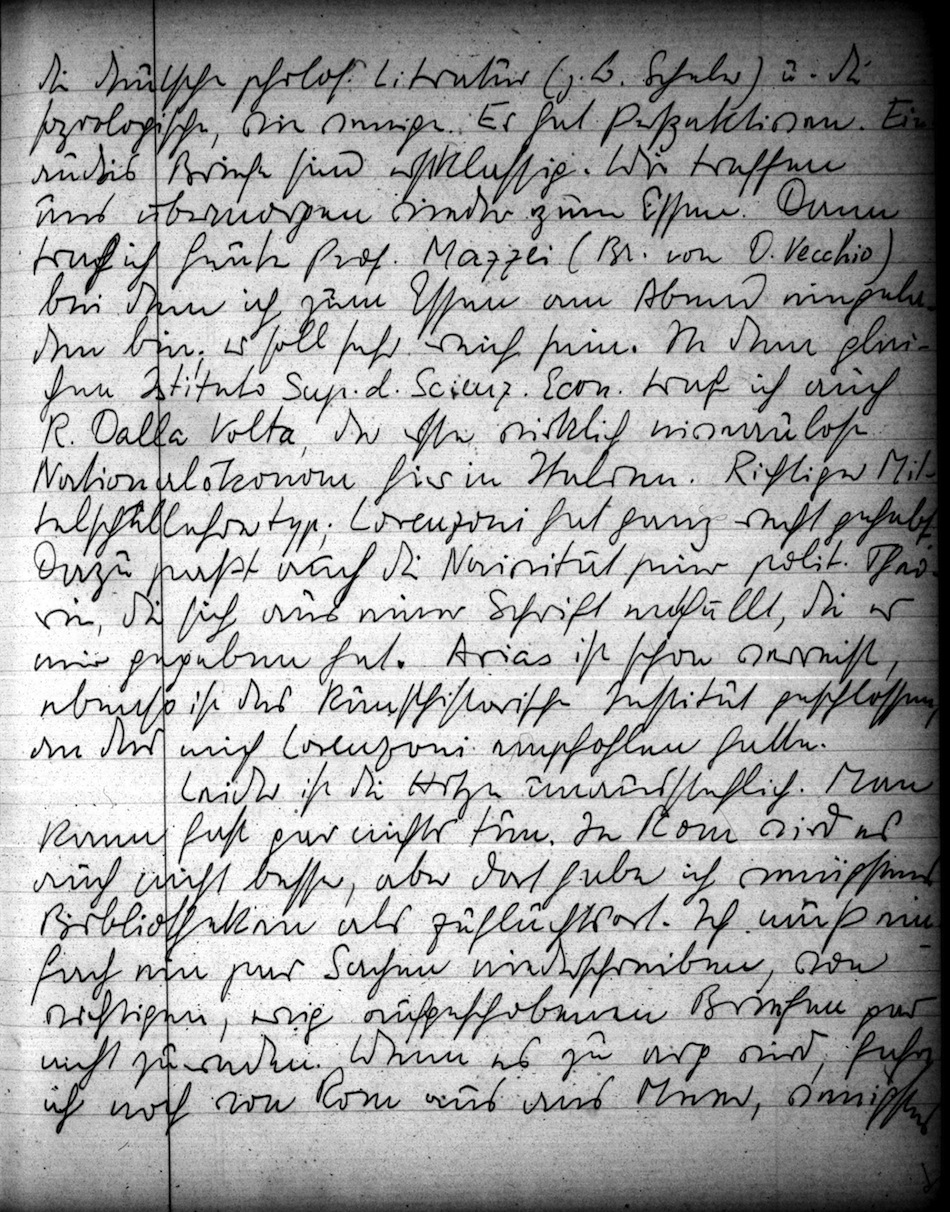 die deutsche philos. Literatur (z. B. Scheler) u. die
soziologische, wie wenige. Er hat Perspektiven. Ein-
audis Briefe sind erstklassig. Wir treffen
uns übermorgen wieder zum Essen. Dann
traf ich heute Prof. Mazzei (Br. von D. Vecchio)
bei dem ich zum Essen am Abend eingela-
den bin; er soll sehr reich sein. In dem glei-
chen Istituto Sup. d. Scienz. Econ. traf ich auch
R. Dalla Volta, der erste wirklich niveaulose
Nationalökonom hier in Italien. Richtiger Mit-
telschullehrertyp; Lorenzoni hat ganz recht gehabt.
Dazu passt auch die Naivität seiner polit. Theo-
rie, die sich aus einer Schrift enthüllt, die er
mir gegeben hat. Arias ist schon verreist,
ebenso ist das Kunsthistorische Institut geschlossen,
an das mich Lorenzoni empfohlen hatte.
Leider ist die Hitze unausstehlich. Man
kann fast gar nichts tun. In Rom wird es
auch nicht besser, aber dort habe ich wenigstens
Bibliotheken als Zufluchtsort. Ich muß ein-
fach ein paar Sachen niederschreiben, von
wichtigen, ewig aufgeschobenen Briefen gar
nicht zu reden. Wenn es zu arg wird, fahre
ich noch von Rom aus ans Meer, wenigstens